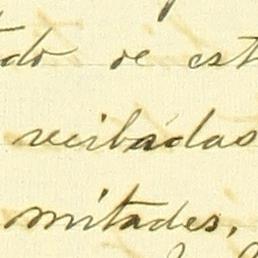 do de est
recibidas
mitades.